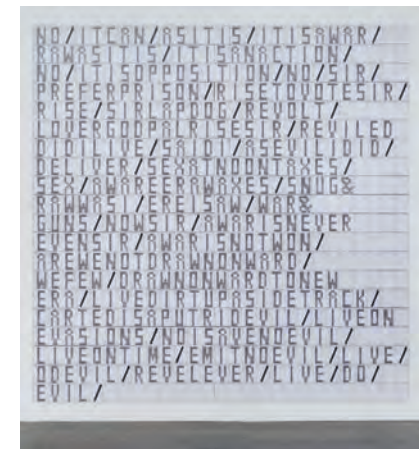 NO/ITCAN/ASITIS/ITISAWAR/
RAWASITIS/ITISANACTION/
NO/ITISOPPOSITION/NO/SIR/
PREFERPRISON/RISETOVOTESIR/
RISE/SIRLAPDOG/REVOLT/
LOVERGODPALRISESIR/REVILED
DIDILIVE/SAIDI/ASEVILIDID/
DELIVER/SEXATNOONTAXES/
SEX/AWAREERAWAXES/SNUG&
RAWWASI/EREISAW/WAR&
GUNS/NOWSIR/AWARISNEVER
EVENSIR/AWARISNOTWON/
AREWENOTDRAWNONWARD/
WEFEW/DRAWNONWARDTONEW
ERA/LIVEDIRTUPASIDETRACK/
CARTEDISAPUTRIDEVIL/LIVEON
EVASIONS/NOISAVENOEVIL/
LIVEONTIME/EMITNOEVIL/LIVE/
ODEVIL/REVELEVER/LIVE/DO/
EVIL/